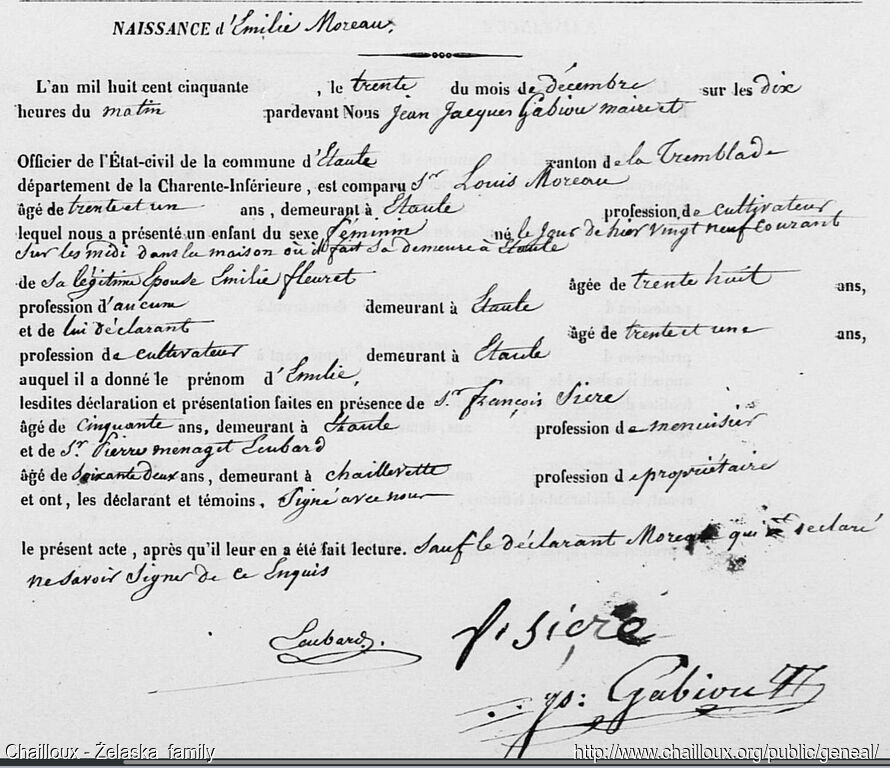 NAISSANCE d'Emilie Moreau.
L'an mil huit cent cinquante , le trente du mois de décembre sur les dix
heures du matin pardevant Nous Jean Jacques Gabiou maire et
Officier de l'État-civil de la commune d'Etaule canton de la Tremblade
département de la Charente-Inférieure, est comparu Sr Louis Moreau
âgé de trente et un ans, demeurant à Etaule profession de cultivateur
lequel nous a présenté un enfant du sexe féminin né le jour de hier vingt neuf courant
sur les midi dans la maison où il fait sa demeure à Etaule
de sa légitime Epouse Emilie fleuret âgée de trente huit ans,
profession d'aucun demeurant à Etaule
et de lui déclarant âgé de trente et une ans,
profession de cultivateur demeurant à Etaule
auquel il a donné le prénom d'Emilie,
lesdites déclaration et présentation faites en présence de Sr françois Sicre
âgé de cinquante ans, demeurant à Etaule profession de menuisier
et de Sr Pierre menaget Loubard
âgé de soixante deux ans, demeurant à chaillevette profession de propriétaire
et ont, les déclarant et témoins, signé avec nous
le présent acte, après qu'il leur en a été fait lecture. Sauf le déclarant Moreau qui a déclaré
ne savoir signer de ce Enquis
Loubard.
f. sicré
Gabiou
Chailloux - Żelaska family http://www.chailloux.org/public/geneal/